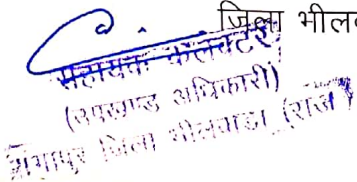 जिला भील
सहायक कलेक्टर
(उपखण्ड अधिकारी)
जिला भीलवाडा (राज